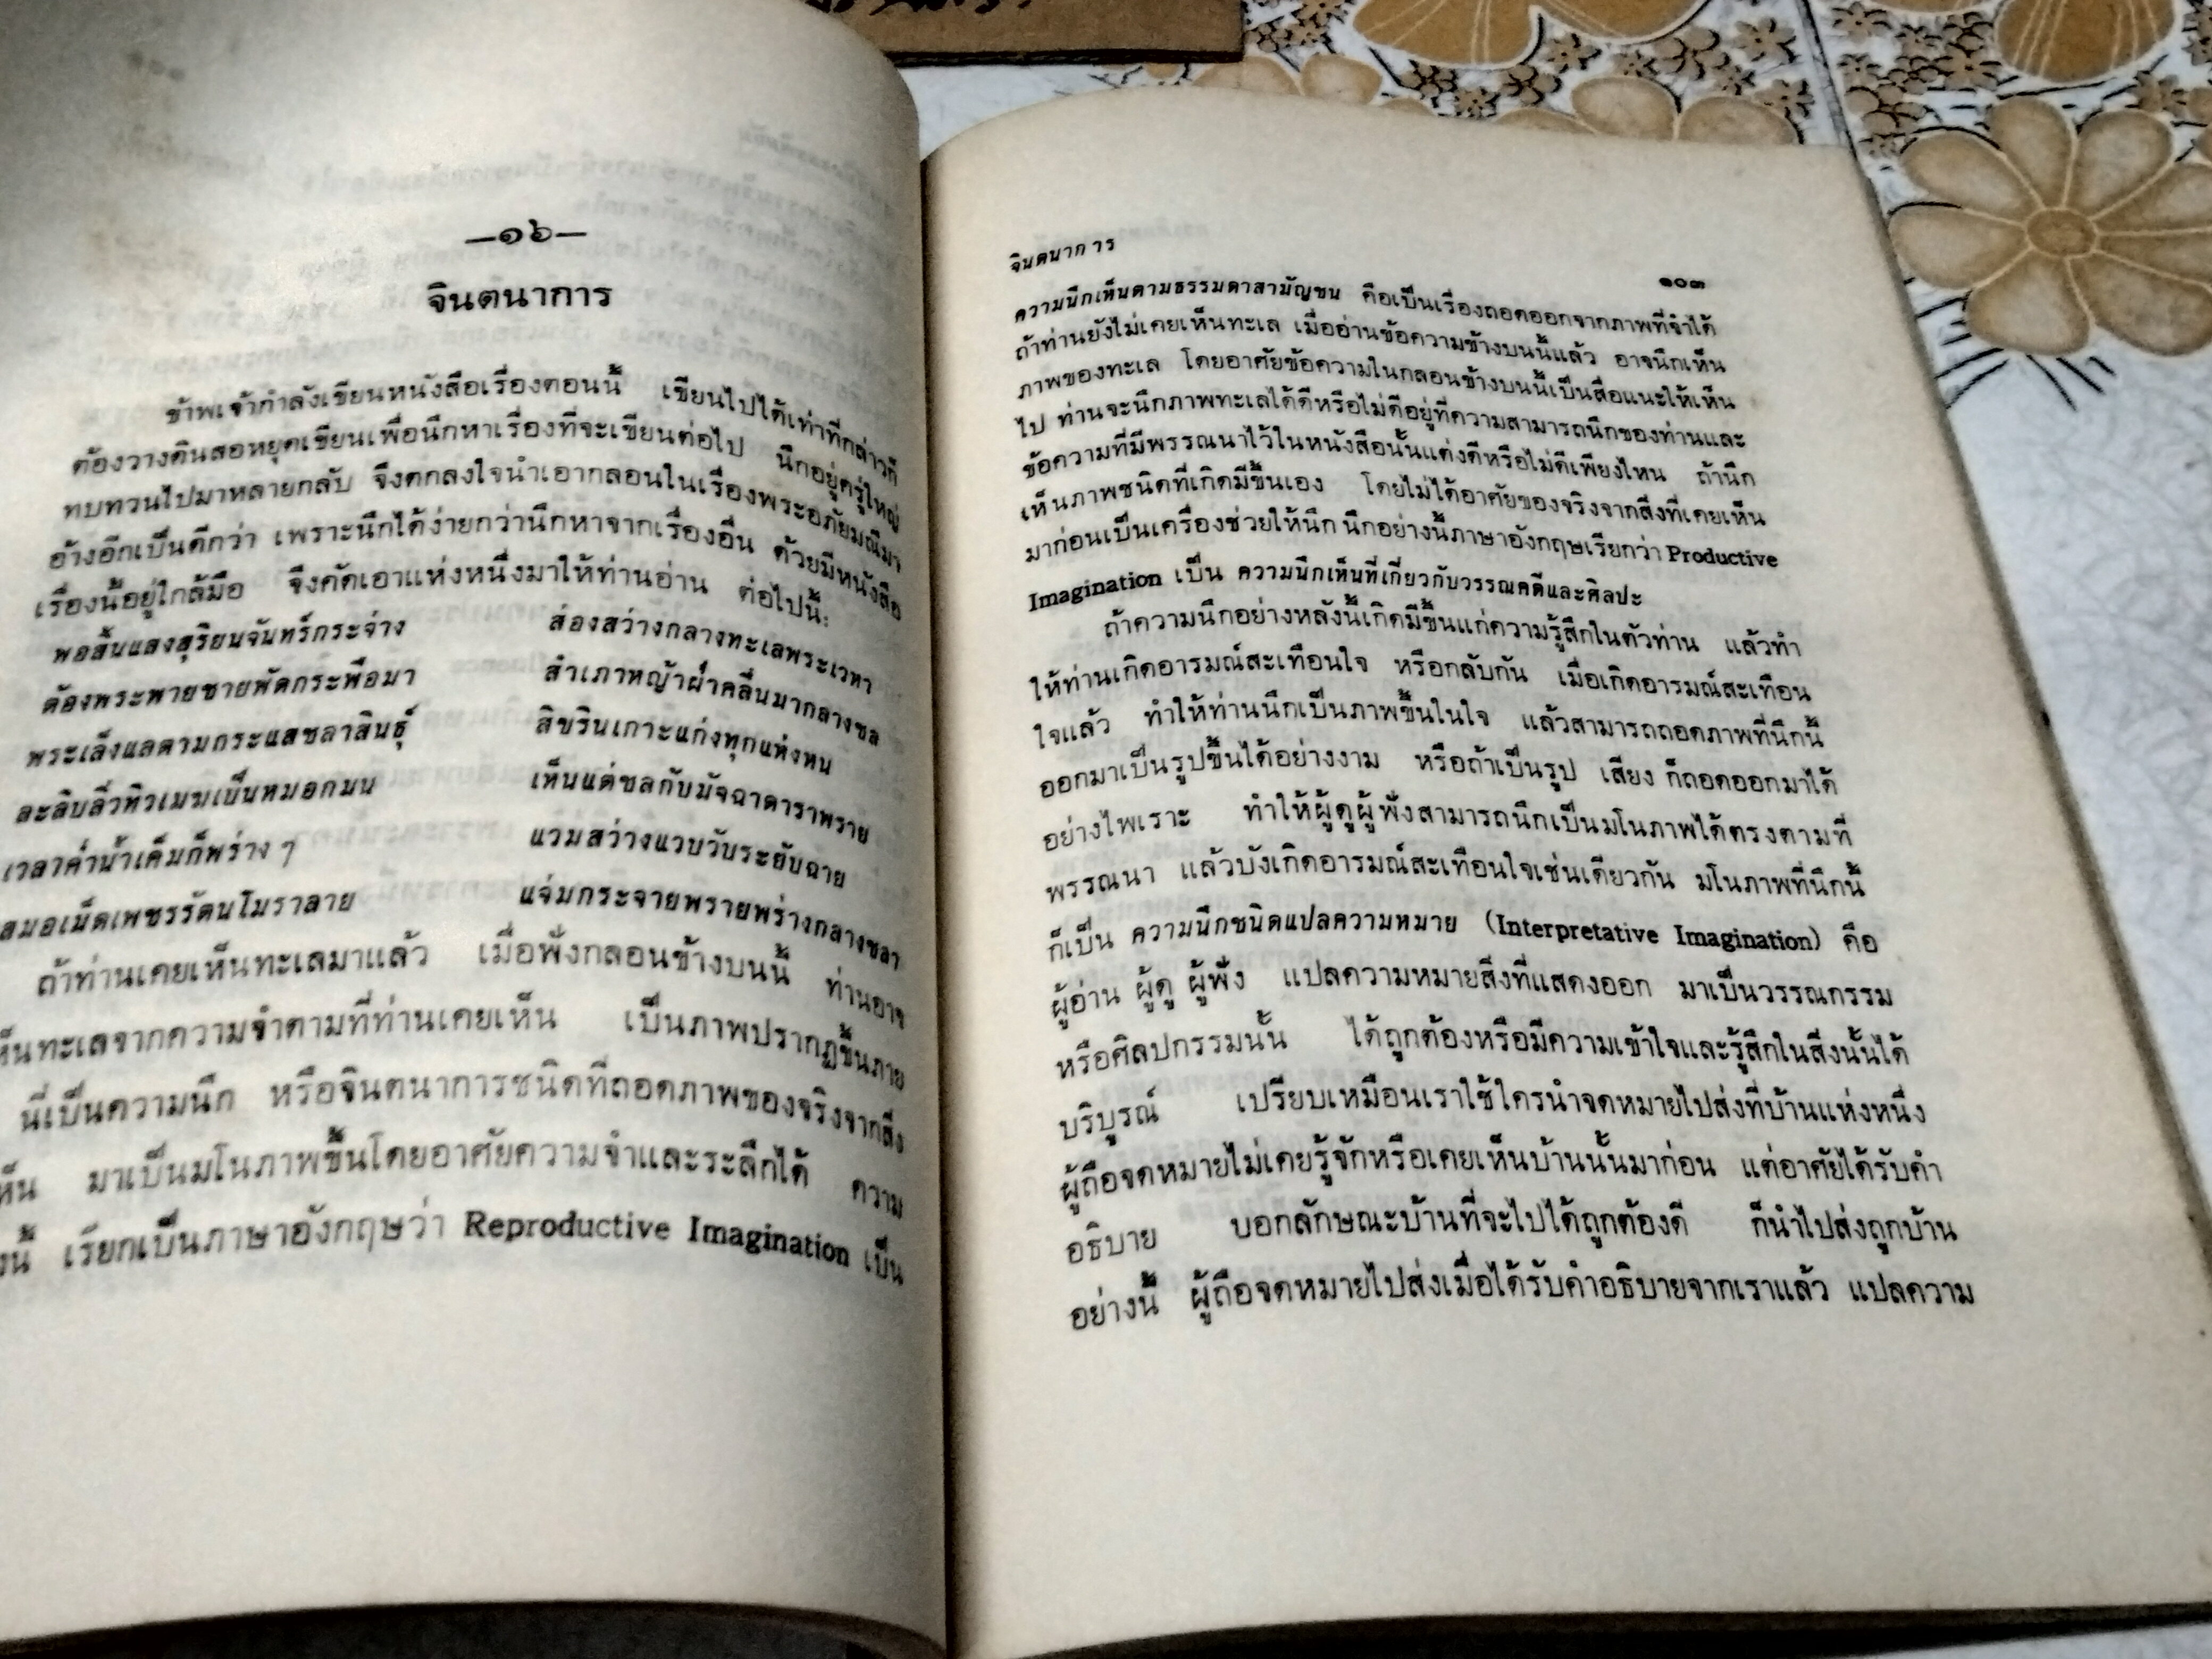 —๑๖—
จินตนาการ
ข้าพเจ้ากำลังเขียนหนังสือเรื่องตอนนี้ เขียนไปได้เท่าที่กล่าวก็
ต้องวางดินสอหยุดเขียนเพื่อนึกหาเรื่องที่จะเขียนต่อไป นึกอยู่ครู่ใหญ่
ทบทวนไปมาหลายกลับ จึงตกลงใจนำเอากลอนในเรื่องพระอภัยมณีมา
อ้างอีกเป็นดีกว่า เพราะนึกได้ง่ายกว่านึกหาจากเรื่องอื่น ด้วยมีหนังสือ
เรื่องนี้อยู่ใกล้มือ จึงคัดเอาแห่งหนึ่งมาให้ท่านอ่าน ต่อไปนี้:
พอสิ้นแสงสุริยนจันทร์กระจ่าง ส่องสว่างกลางทะเลพระเวหา
ต้องพระพายชายพัดกระพือมา สำเภาหญ้าฝ่าคลื่นมากลางชล
พระเล็งแลตามกระแสชลาสินธุ์ สิขรินเกาะแก่งทุกแห่งหน
ละลิบลิ่วทิวเมฆเป็นหมอกมน เห็นแต่ชลกับมัจฉาดาราพราย
เวลาค่ำน้ำเค็มก็พร่าง ๆ แวมสว่างแวบวับระยับฉาย
สมอเม็ดเพชรรัตนโมราลาย แจ่มกระจายพรายพร่างกลางชลา
ถ้าท่านเคยเห็นทะเลมาแล้ว เมื่อฟังกลอนข้างบนนี้ ท่านอาจ
ทะเลจากความจำตามที่ท่านเคยเห็น เป็นภาพปรากฏขึ้นภาย
นี่เป็นความนึก หรือจินตนาการชนิดที่ถอดภาพของจริงจากสิ่ง
มาเป็นมโนภาพขึ้นโดยอาศัยความจำและระลึกได้ ความ
เรียกเป็นภาษาอังกฤษว่า Reproductive Imagination เป็น
จินตนาการ
๑๐๓
ความนึกเห็นตามธรรมดาสามัญชน คือเป็นเรื่องถอดออกจากภาพที่จำได้
ถ้าท่านยังไม่เคยเห็นทะเล เมื่ออ่านข้อความข้างบนนี้แล้ว อาจนึกเห็น
ภาพของทะเล โดยอาศัยข้อความในกลอนข้างบนนี้เป็นสื่อแนะให้เห็น
ไป ท่านจะนึกภาพทะเลได้ดีหรือไม่ดีอยู่ที่ความสามารถนึกของท่านและ
ข้อความที่มีพรรณนาไว้ในหนังสือนั้นแต่งดีหรือไม่ดีเพียงไหน ถ้านึก
เห็นภาพชนิดที่เกิดมีขึ้นเอง โดยไม่ได้อาศัยของจริงจากสิ่งที่เคยเห็น
มาก่อนเป็นเครื่องช่วยให้นึก นึกอย่างนี้ภาษาอังกฤษเรียกว่า Productive
Imagination เป็น ความนึกเห็นที่เกี่ยวกับวรรณคดีและศิลปะ
ถ้าความนึกอย่างหลังนี้เกิดมีขึ้นแก่ความรู้สึกในตัวท่าน แล้วทำ
ให้ท่านเกิดอารมณ์สะเทือนใจ หรือกลับกัน เมื่อเกิดอารมณ์สะเทือน
ใจแล้ว ทำให้ท่านนึกเป็นภาพขึ้นในใจ แล้วสามารถถอดภาพที่นึกนี้
ออกมาเป็นรูปขึ้นได้อย่างงาม หรือถ้าเป็นรูป เสียง ก็ถอดออกมาได้
อย่างไพเราะ ทำให้ผู้ดูผู้ฟังสามารถนึกเป็นมโนภาพได้ตรงตามที่
พรรณนา แล้วบังเกิดอารมณ์สะเทือนใจเช่นเดียวกัน มโนภาพที่นึกนี้
ก็เป็น ความนึกชนิดแปลความหมาย (Interpretative Imagination) คือ
ผู้อ่าน ผู้ดู ผู้ฟัง แปลความหมายสิ่งที่แสดงออก มาเป็นวรรณกรรม
หรือศิลปกรรมนั้น ได้ถูกต้องหรือมีความเข้าใจและรู้สึกในสิ่งนั้นได้
บริบูรณ์ เปรียบเหมือนเราใช้ใครนำจดหมายไปส่งที่บ้านแห่งหนึ่ง
ผู้ถือจดหมายไม่เคยรู้จักหรือเคยเห็นบ้านนั้นมาก่อน แต่อาศัยได้รับคำ
อธิบาย บอกลักษณะบ้านที่จะไปได้ถูกต้องดี ก็นำไปส่งถูกบ้าน
อย่างนี้ ผู้ถือจดหมายไปส่งเมื่อได้รับคำอธิบายจากเราแล้ว แปลความ